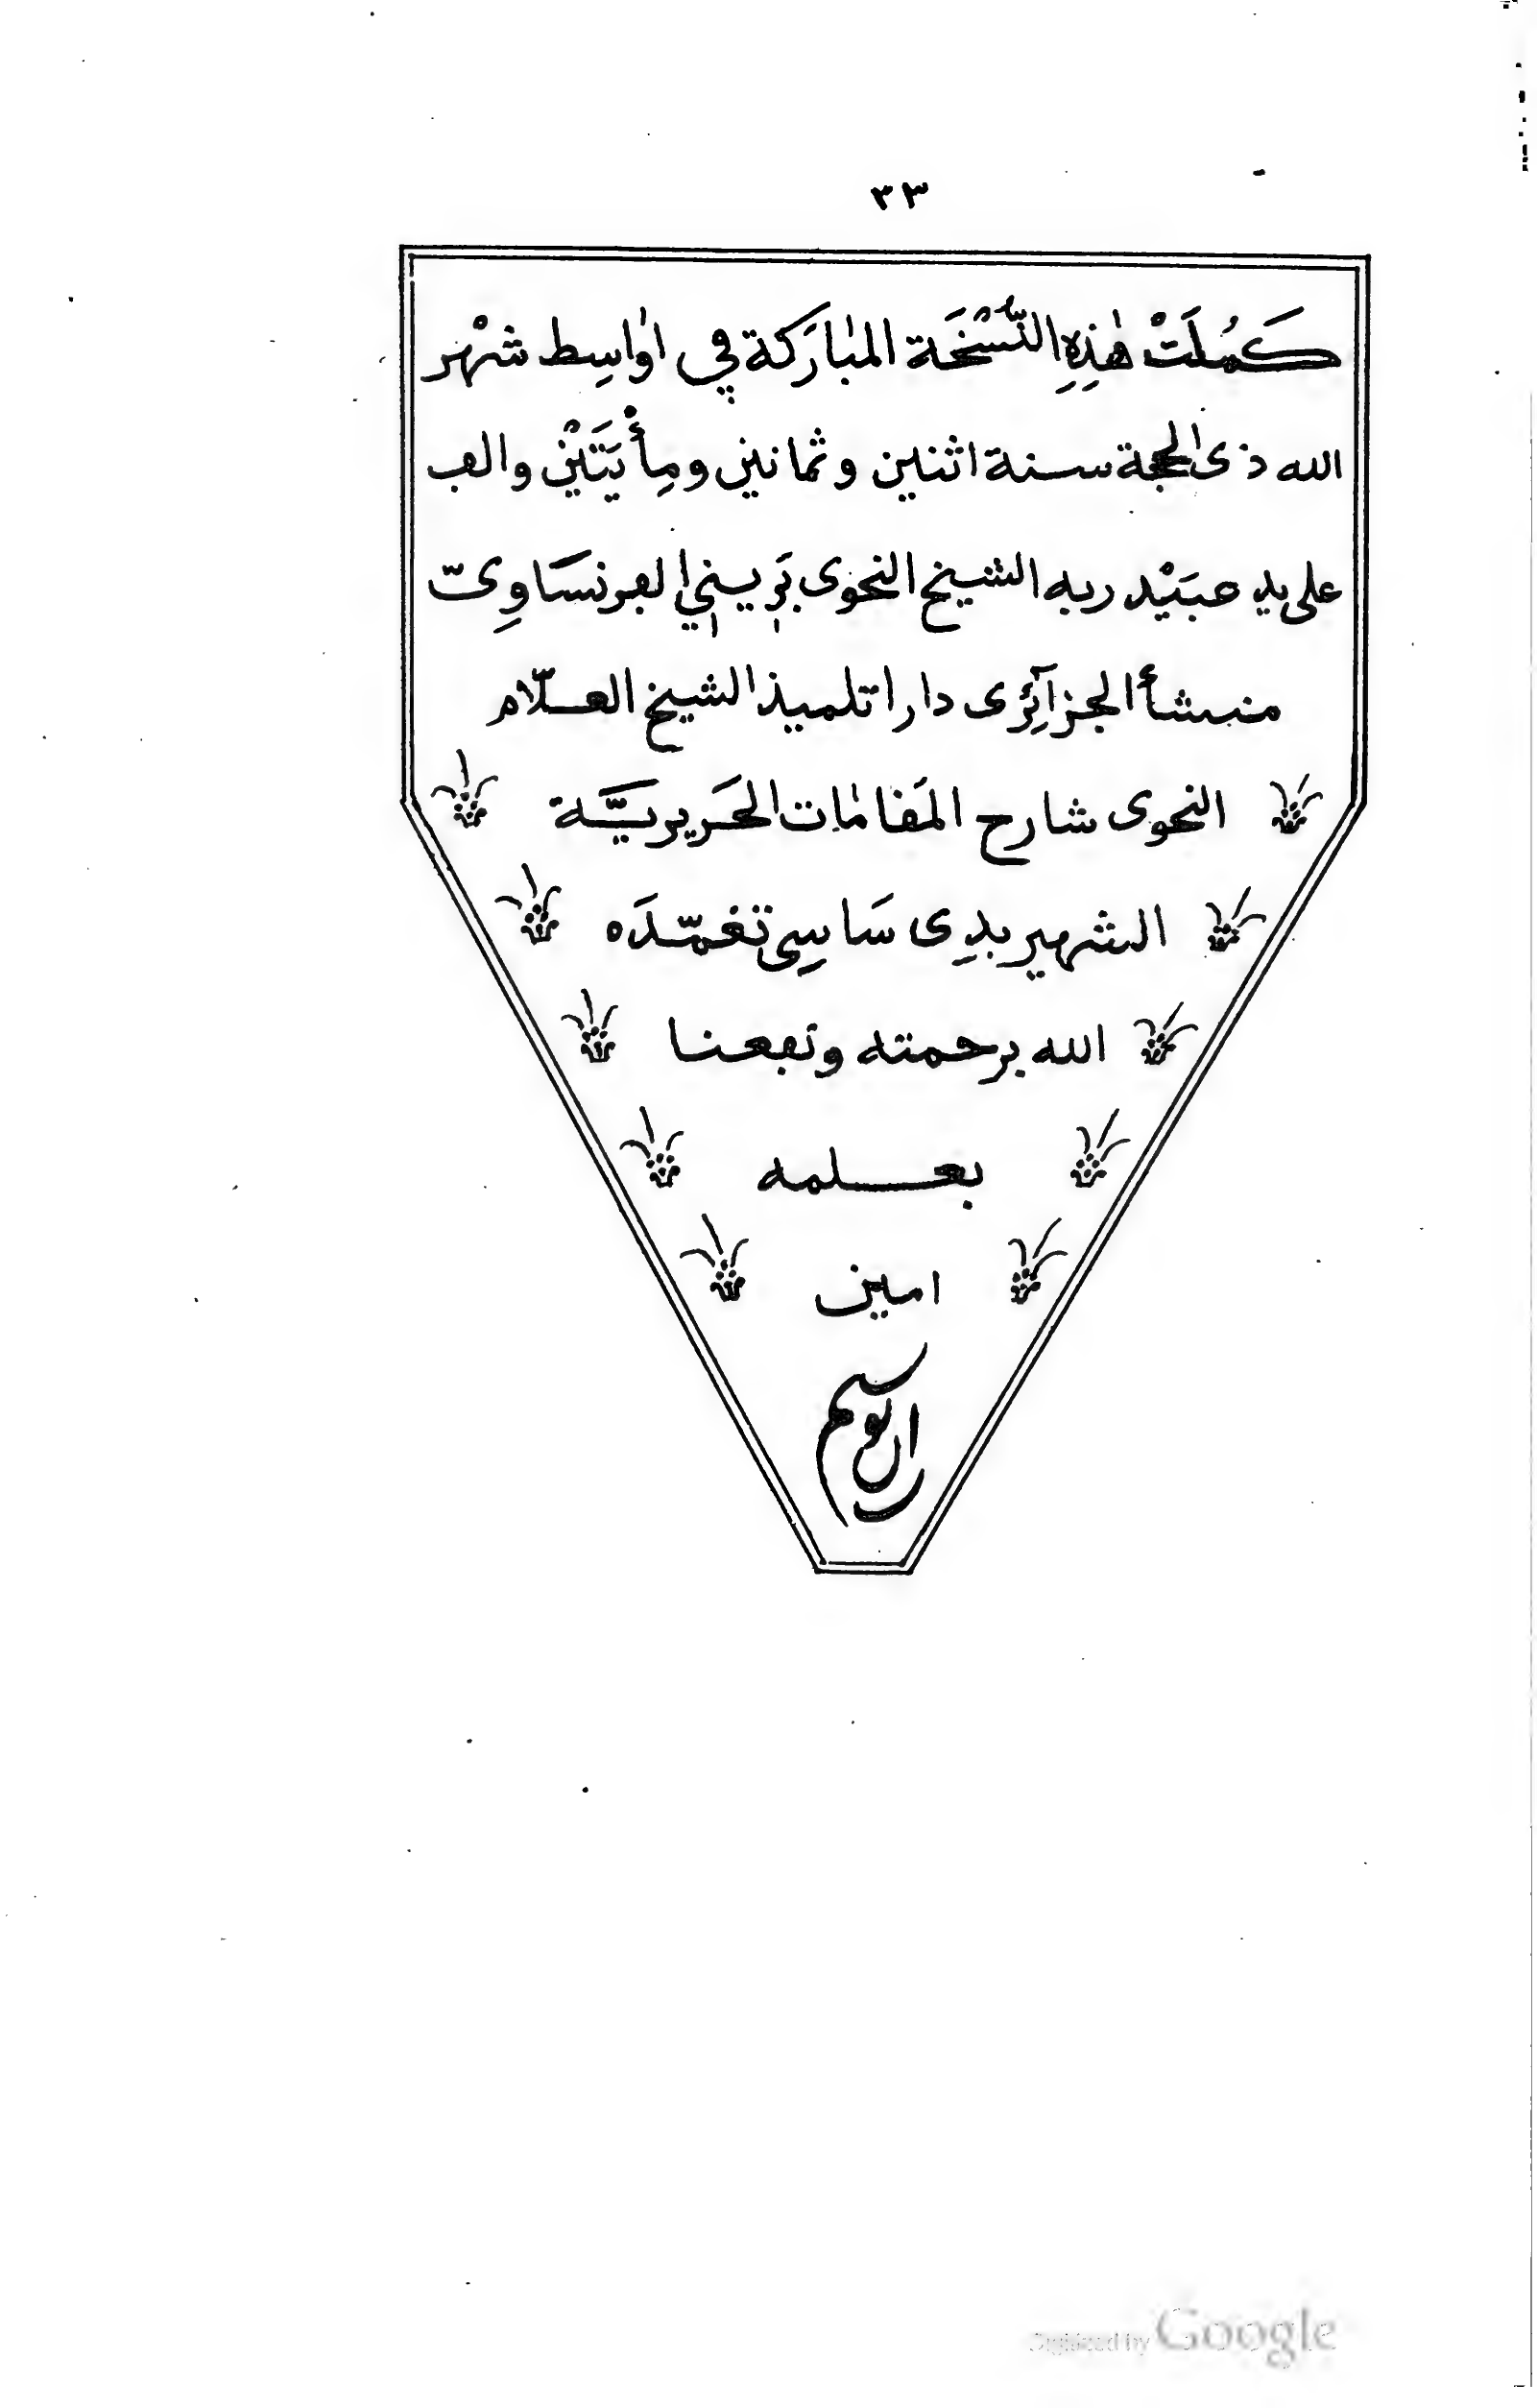 ٣٣
كَمُلَتْ هٰذِهِ النُّسْخَة المبٰارَكة في اوٰاسِط شهْر
الله ذى الحجة سنة اثنين وثمانين ومِأْيَتَيْن والف
على يد عبَيْد ربه الشيخ النحوى بَرِيسنِي الفرنسَاوِىّ
منشأ الجزآئِرى دارا تلميذ الشيخ العلّام
النحوى شارح المَقامٰات الحَريريَّة
الشهير بدِى سَاسِي تغمّدَه
الله برحمته ونفعنا
بعلمه
امين
Digitized by Google